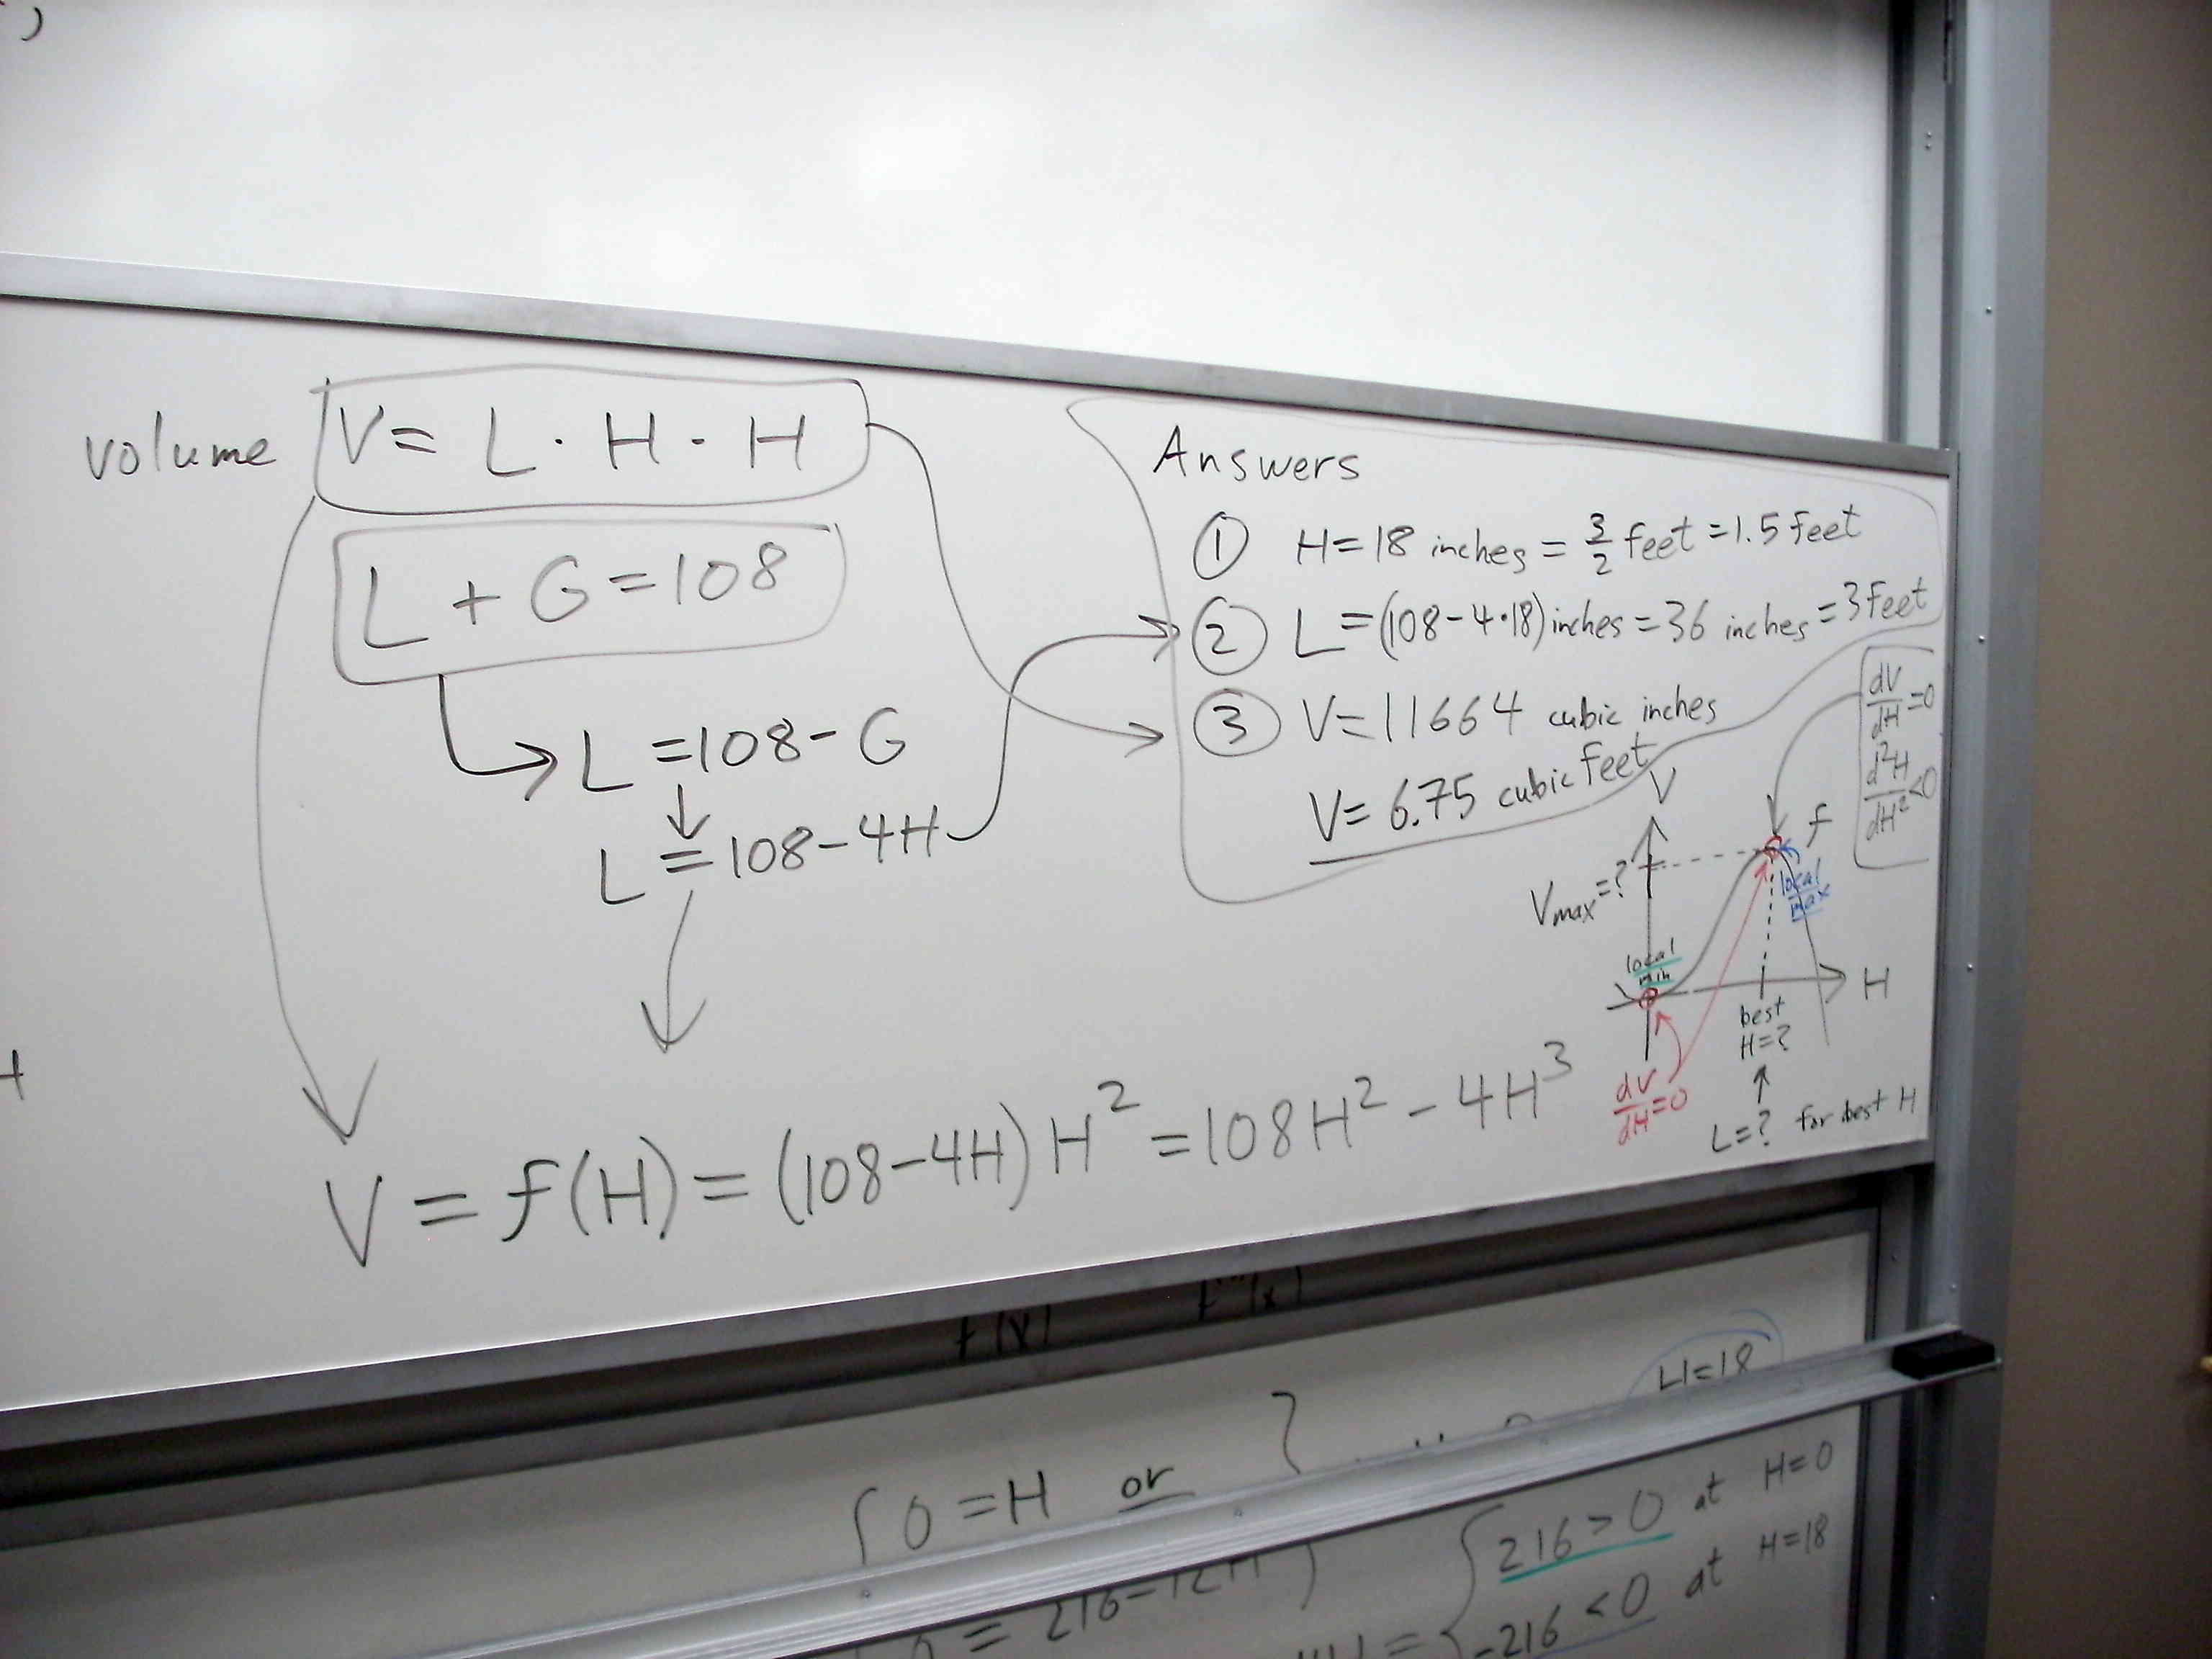 volume V = L · H · H
L + G = 108
L = 108 - G
L = 108 - 4H
V = f(H) = (108 - 4H) H² = 108H² - 4H³
Answers
① H = 18 inches = 3/2 feet = 1.5 feet
② L = (108 - 4·18) inches = 36 inches = 3 feet
③ V = 11664 cubic inches
V = 6.75 cubic feet
dV/dH = 0
d²H/dH² < 0
V
f
Vmax = ?
local max
local min
H
best
H = ?
dV/dH = 0
L = ? for best H
H = 18
{ 0 = H or }
= 216 - 12H
216 > 0 at H = 0
-216 < 0 at H = 18